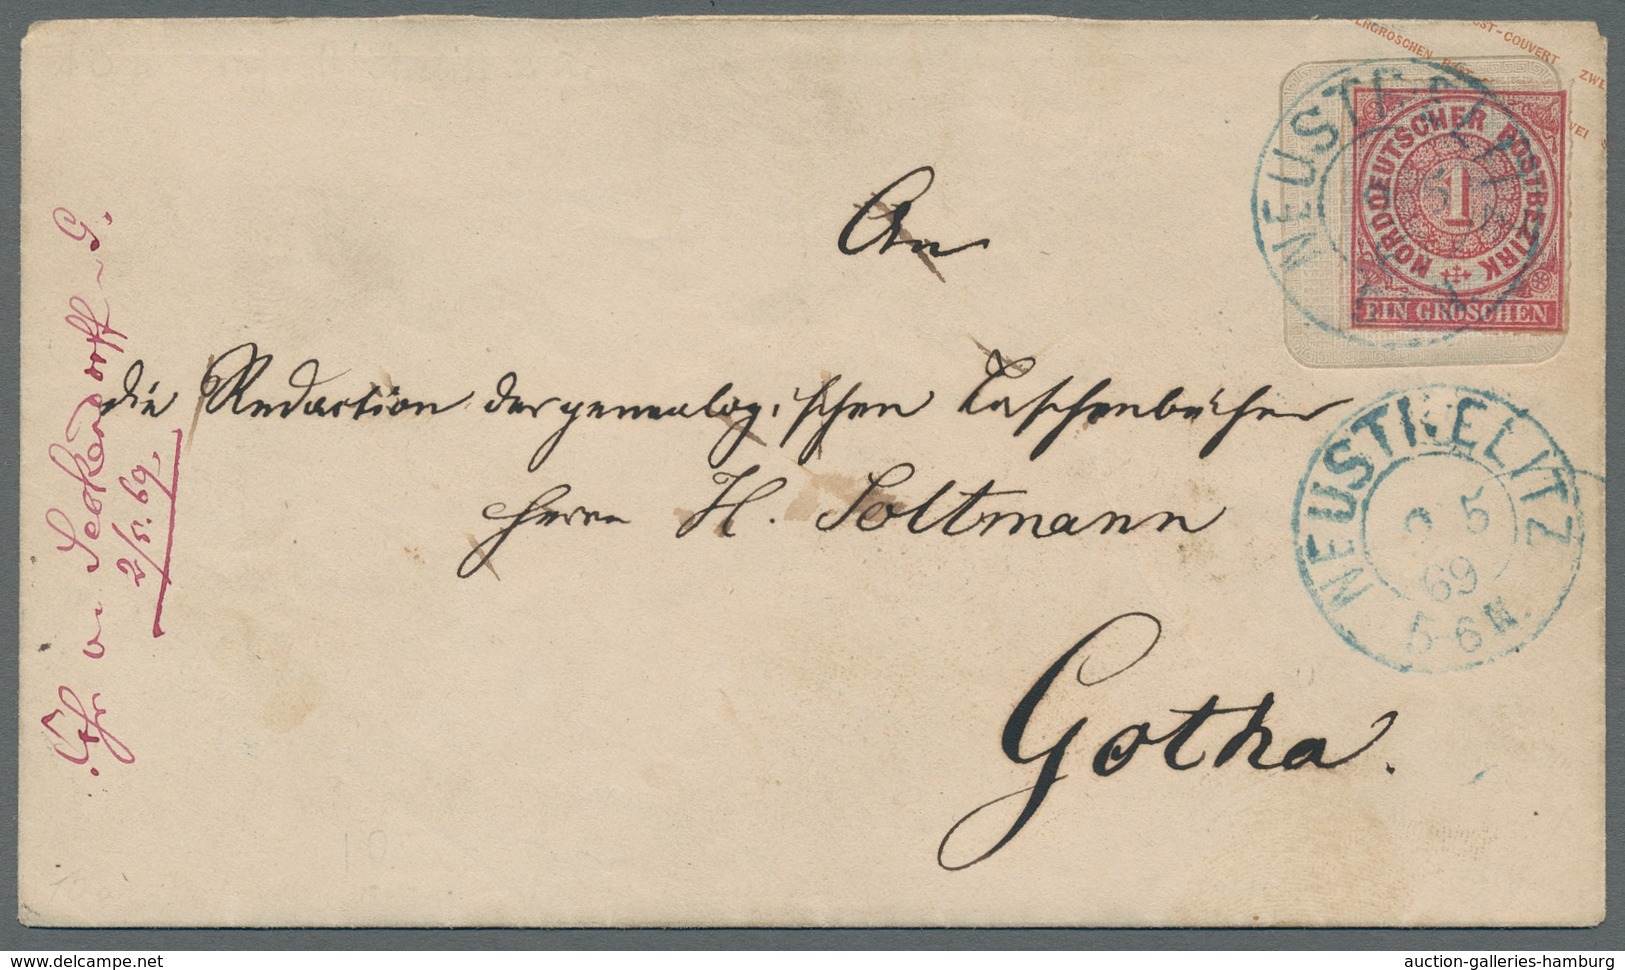 ST-COUVERT ZWE
ERGROSCHEN POST-
WEI
NEUSTRELITZ
NORDDEUTSCHER POSTBEZIRK
1
EIN GROSCHEN
An
die Redaction der genealogischen Taschenbücher
Herrn H. Soltmann
Gotha.
NEUSTRELITZ
2 5
69
5-6 N.
Frhr von Seckendorff
2/5. 69
delcampe.net
auction-galleries-hamburg